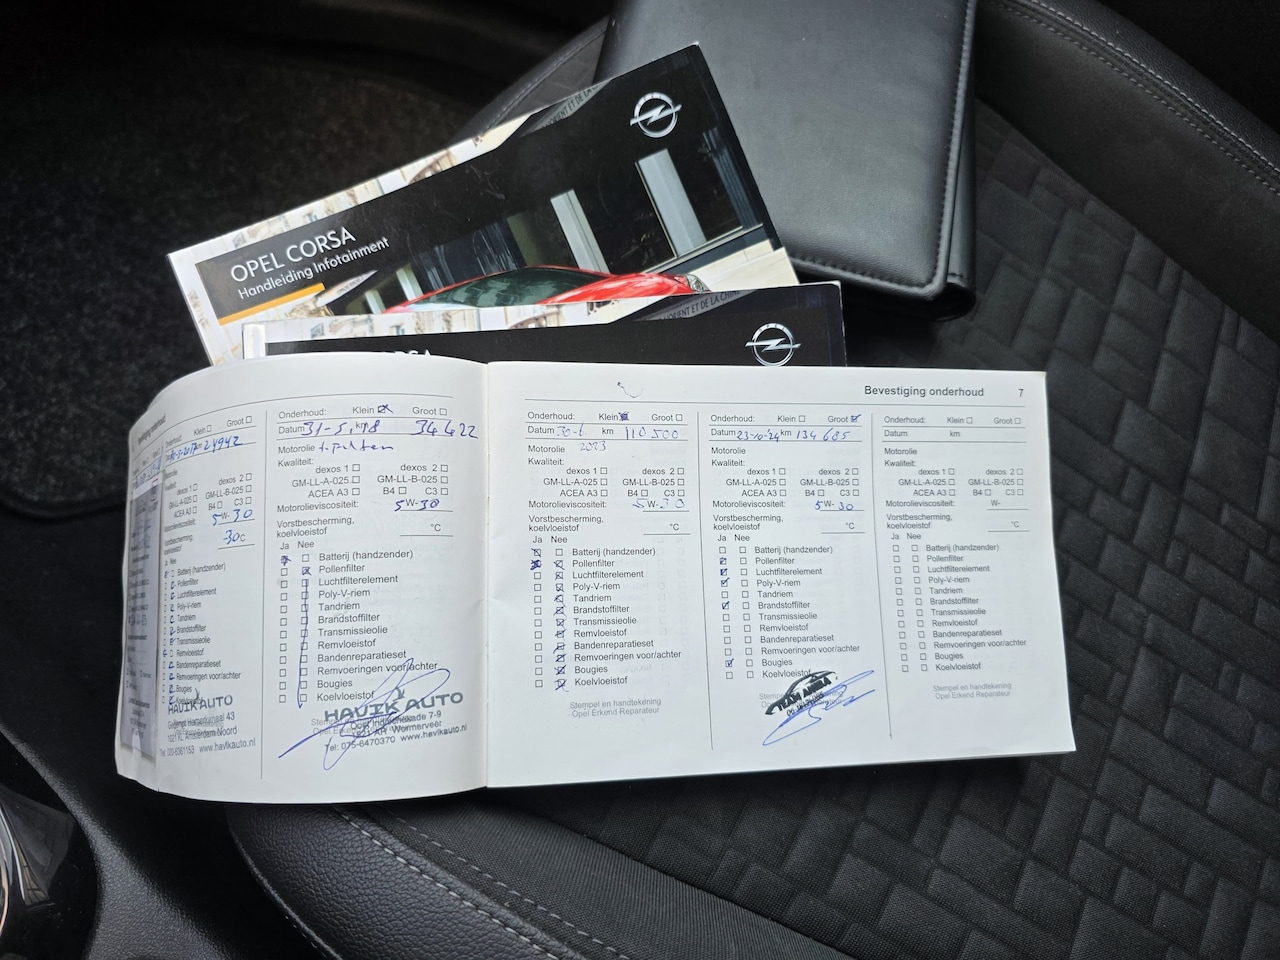 OPEL CORSA
Handleiding Infotainment
Klein ☐ Groot ☐
24942
dexos 1 ☐ dexos 2 ☐
GM-LL-A-025 ☐ GM-LL-B-025 ☐
ACEA A3 ☐ B4 ☐ C3 ☐
Motorolieviscositeit: 5W-30
30°C
Batterij (handzender)
Pollenfilter
Luchtfilterelement
Poly-V-riem
Tandriem
Brandstoffilter
Transmissieolie
Remvloeistof
Bandenreparatieset
Remvoeringen voor/achter
Bougies
HAVIK AUTO
1021 KL Amsterdam Noord
www.havikauto.nl
Onderhoud: Klein ☒ Groot ☐
Datum 31-5-'18 km 34422
Motorolie + filter
Kwaliteit:
dexos 1 ☐ dexos 2 ☐
GM-LL-A-025 ☐ GM-LL-B-025 ☐
ACEA A3 ☐ B4 ☐ C3 ☐
Motorolieviscositeit: 5W-30
Vorstbescherming,
koelvloeistof °C
Ja Nee
Batterij (handzender)
Pollenfilter
Luchtfilterelement
Poly-V-riem
Tandriem
Brandstoffilter
Transmissieolie
Remvloeistof
Bandenreparatieset
Remvoeringen voor/achter
Bougies
Koelvloeistof
HAVIK AUTO
7-9
Wormerveer
Tel: 075-6470370 www.havikauto.nl
Bevestiging onderhoud 7
Onderhoud: Klein ☒ Groot ☐
Datum 30-6 km 110500
Motorolie 2023
Kwaliteit:
dexos 1 ☐ dexos 2 ☐
GM-LL-A-025 ☐ GM-LL-B-025 ☐
ACEA A3 ☐ B4 ☐ C3 ☐
Motorolieviscositeit: 5W-30
Vorstbescherming,
koelvloeistof °C
Ja Nee
Batterij (handzender)
Pollenfilter
Luchtfilterelement
Poly-V-riem
Tandriem
Brandstoffilter
Transmissieolie
Remvloeistof
Bandenreparatieset
Remvoeringen voor/achter
Bougies
Koelvloeistof
Stempel en handtekening
Opel Erkend Reparateur
Onderhoud: Klein ☐ Groot ☒
Datum 23-10-24 km 134685
Motorolie
Kwaliteit:
dexos 1 ☐ dexos 2 ☐
GM-LL-A-025 ☐ GM-LL-B-025 ☐
ACEA A3 ☐ B4 ☐ C3 ☐
Motorolieviscositeit: 5W-30
Vorstbescherming,
koelvloeistof °C
Ja Nee
Batterij (handzender)
Pollenfilter
Luchtfilterelement
Poly-V-riem
Tandriem
Brandstoffilter
Transmissieolie
Remvloeistof
Bandenreparatieset
Remvoeringen voor/achter
Bougies
Koelvloeistof
Onderhoud: Klein ☐ Groot ☐
Datum km
Motorolie
Kwaliteit:
dexos 1 ☐ dexos 2 ☐
GM-LL-A-025 ☐ GM-LL-B-025 ☐
ACEA A3 ☐ B4 ☐ C3 ☐
Motorolieviscositeit: W-
Vorstbescherming,
koelvloeistof °C
Ja Nee
Batterij (handzender)
Pollenfilter
Luchtfilterelement
Poly-V-riem
Tandriem
Brandstoffilter
Transmissieolie
Remvloeistof
Bandenreparatieset
Remvoeringen voor/achter
Bougies
Koelvloeistof
Stempel en handtekening
Opel Erkend Reparateur